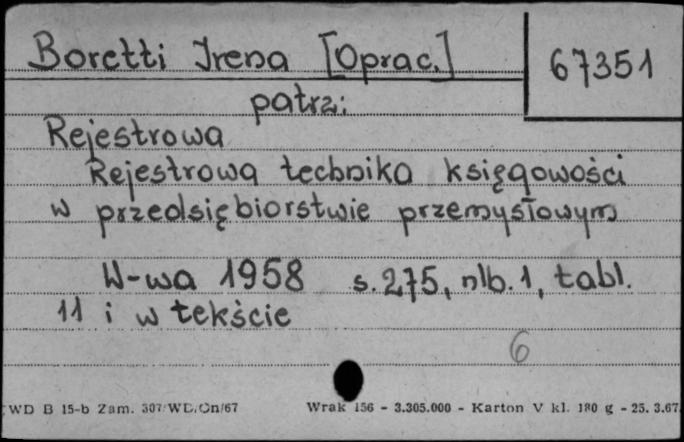 Boretti Irena [Oprac.]
67351
patrz:
Rejestrowa
Rejestrowa technika księgowości
w przedsiębiorstwie przemysłowym
W-wa 1958 s. 275, nlb. 1, tabl.
11 i w tekście
6
WD B 15-b Zam. 307/WD/On/67 Wrak 156 - 3.305.000 - Karton V kl. 180 g - 25. 3.67